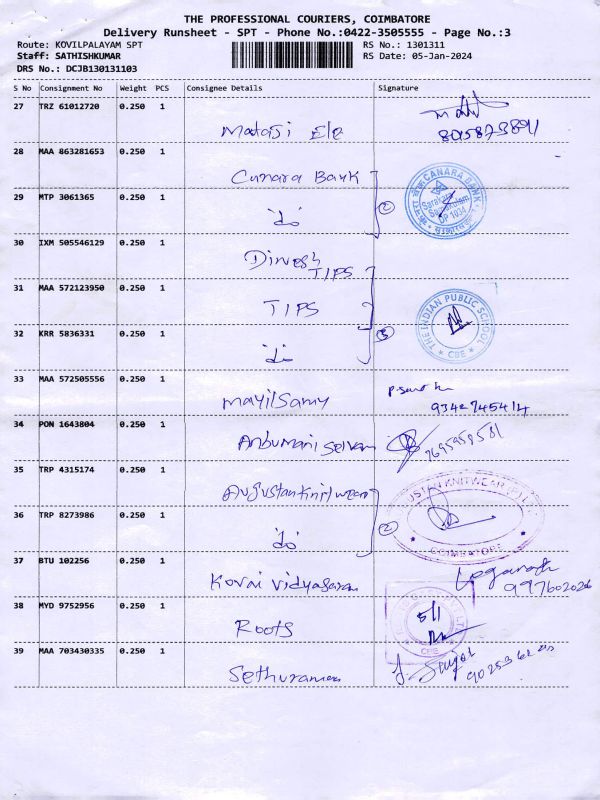 THE PROFESSIONAL COURIERS, COIMBATORE
Delivery Runsheet - SPT - Phone No.:0422-3505555 - Page No.:3
Route: KOVILPALAYAM SPT
RS No.: 1301311
Staff: SATHISHKUMAR
RS Date: 05-Jan-2024
DRS No.: DCJB130131103
S No Consignment No Weight PCS Consignee Details Signature
27 TRZ 61012720 0.250 1
Mataji Ele
8015873891
28 MAA 863281653 0.250 1
Canara Bank
CANARA BANK
DP 1934
29 MTP 3061365 0.250 1
do
2
30 IXM 505546129 0.250 1
Dinesh
TIPS
31 MAA 572123950 0.250 1
TIPS
THE INDIAN PUBLIC SCHOOL
CBE
32 KRR 5836331 0.250 1
do
3
33 MAA 572505556 0.250 1
mayilsamy
9342745414
34 PON 1643804 0.250 1
Anbumani selvam
7695959581
35 TRP 4315174 0.250 1
KNITWEAR (P) LTD
COIMBATORE
36 TRP 8273986 0.250 1
do
2
37 BTU 102256 0.250 1
Kovai vidyasaram
Loganath
997602026
38 MYD 9752956 0.250 1
Roots
5/1
CBE
39 MAA 703430335 0.250 1
Sethuraman